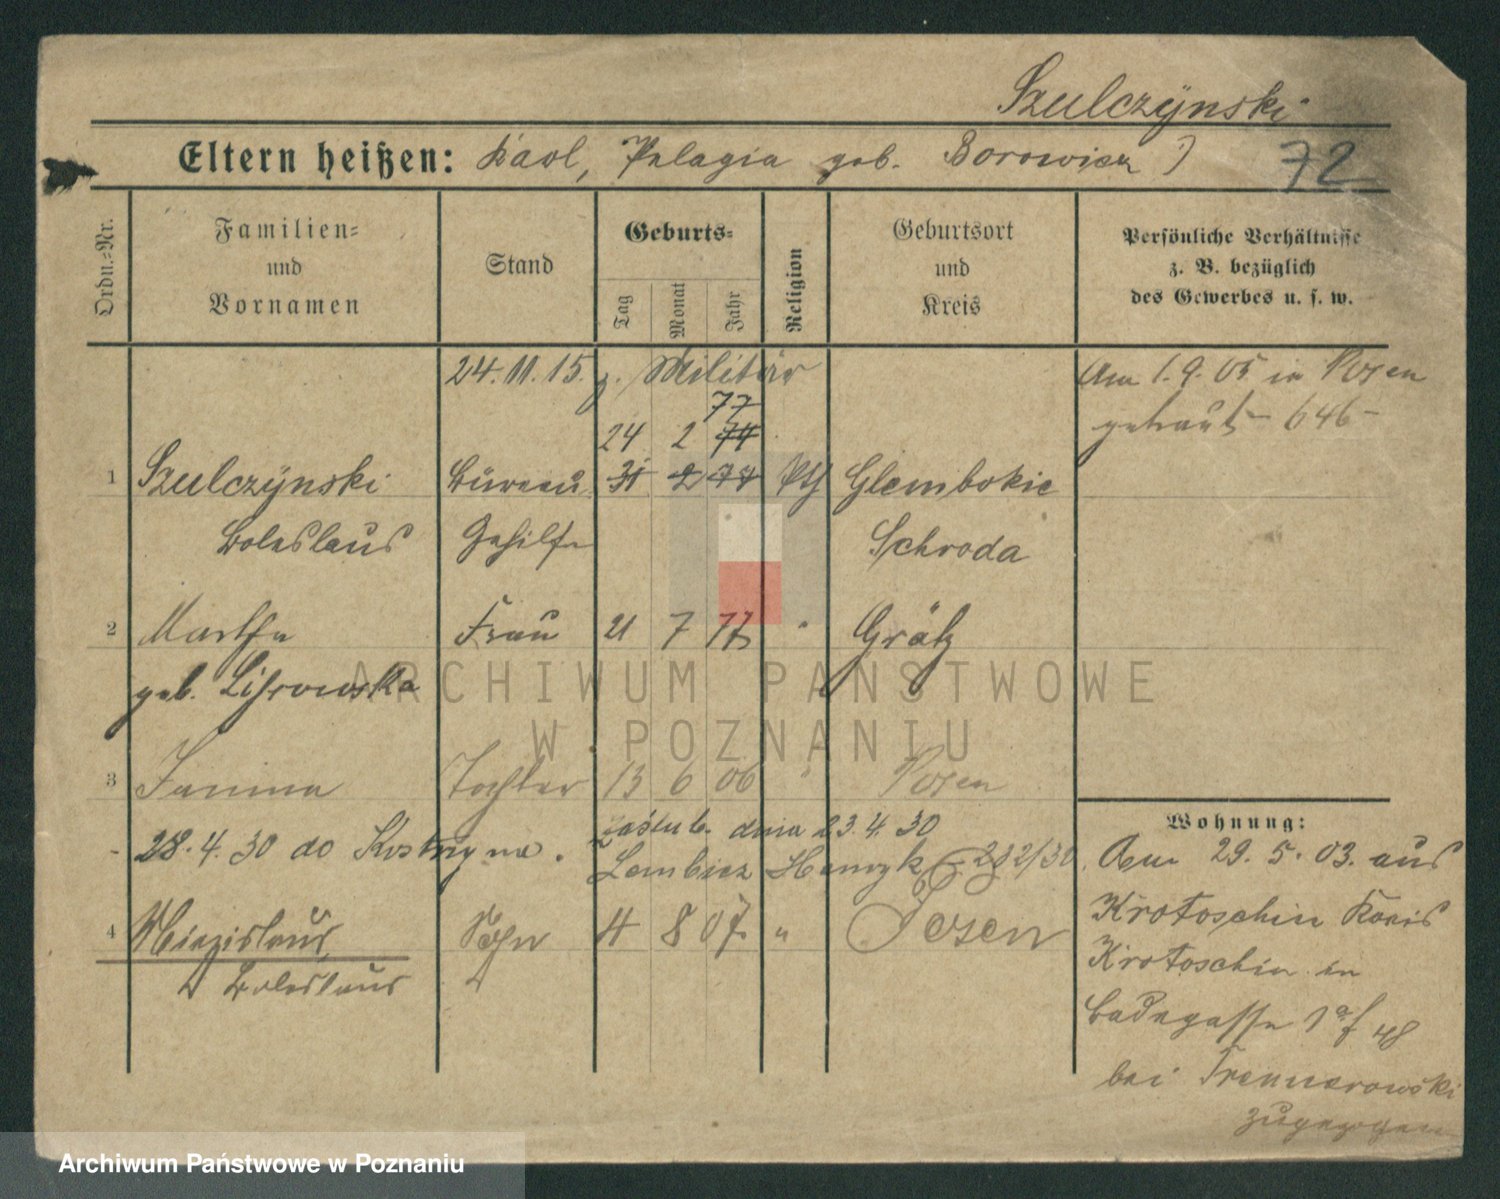 Szulczÿnski
Eltern heißen: Karl, Pelagia geb. Borowicz
72
Ordn.-Nr.
Familien-
und
Vornamen
Stand
Geburts-
Tag
Monat
Jahr
Religion
Geburtsort
und
Kreis
Persönliche Verhältnisse
z. B. bezüglich
des Gewerbes u. s. w.
24.11.15. z. Militär
Am 1.9.05 in Posen
getraut - 646 -
77
24 2 74
1 Szulczÿnski Büreau 31 2 77 kth Glembokie
Boleslaus Gehilfe Schroda
2 Martha Frau 21 7 77 " Grätz
geb. Lisrowska
3 Janina Tochter 13 6 06 " Posen
28.4.30 do Kostrzyna. zaślub. dnia 23.4.30
Lembicz Henryk 282/30
4 Miezislaus Sohn 4 8 07 " Posen
Boleslaus
Wohnung:
Am 29.5.03. aus
Krotoschin Kreis
Krotoschin in
Badegasse 1a
bei
zugezogen
ARCHIWUM PAŃSTWOWE
W POZNANIU
Archiwum Państwowe w Poznaniu